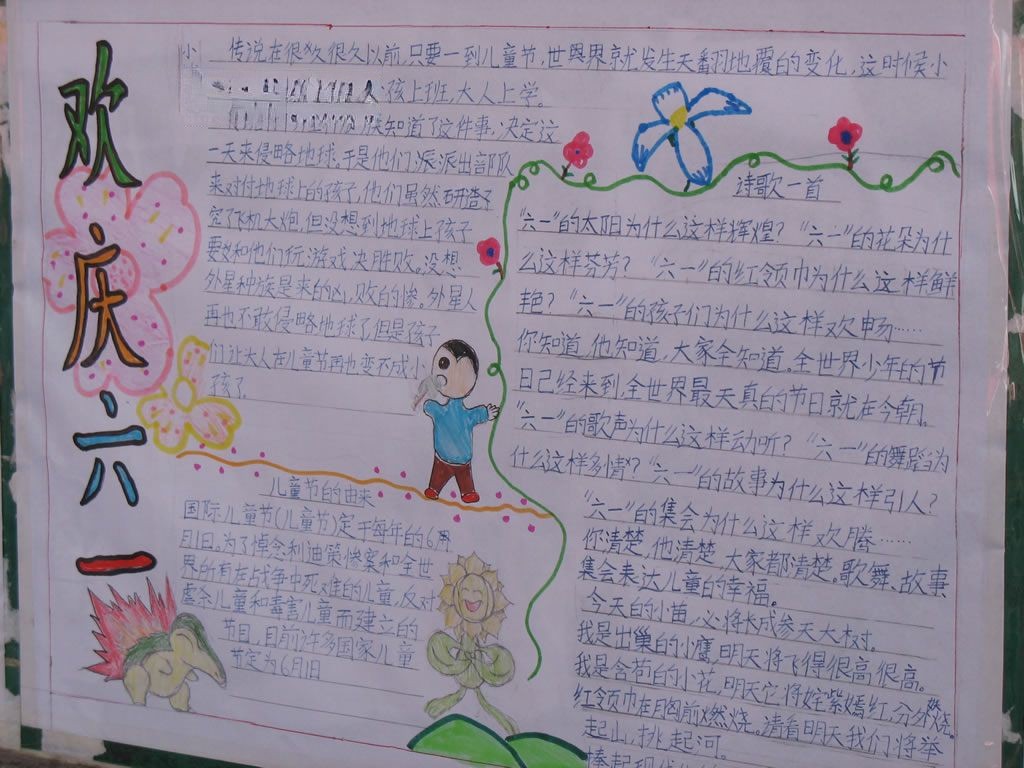 欢庆六一
小 传说在很久很久以前,只要一到儿童节,世界就发生天翻地覆的变化,这时候小
孩上班,大人上学。
知道了这件事,决定这
一天来侵略地球。于是他们派派出部队
来对付地球上的孩子,他们虽然研造了
飞机大炮,但没想到地球上孩子
要和他们玩游戏决胜败。没想
外星种族是来的凶,败的惨。外星人
再也不敢侵略地球了但是孩子
们让大人在儿童节再也变不成小
孩了
儿童节的由来
国际儿童节(儿童节)定于每年的6月
1日。为了悼念利迪策惨案和全世
界所有在战争中死难的儿童,反对
虐杀儿童和毒害儿童而建立的
节日,目前许多国家儿童
节定为6月1日
诗歌一首
“六一”的太阳为什么这样辉煌?“六一”的花朵为什
么这样芬芳?“六一”的红领巾为什么这样鲜
艳?“六一”的孩子们为什么这样欢畅……
你知道,他知道,大家全知道。全世界少年的节
日已经来到,全世界最天真的节日就在今朝。
“六一”的歌声为什么这样动听?“六一”的舞蹈为
什么这样多情?“六一”的故事为什么这样引人?
“六一”的集会为什么这样欢腾……
你清楚,他清楚,大家都清楚。歌舞、故事
集会表达儿童的幸福。
今天的小苗,必将长成参天大树。
我是出巢的小鹰,明天将飞得很高很高。
我是含苞的小花,明天它将姹紫嫣红,分外娆
红领巾在胸前燃烧。请看明天我们将举
起山,挑起河。
捧起现代